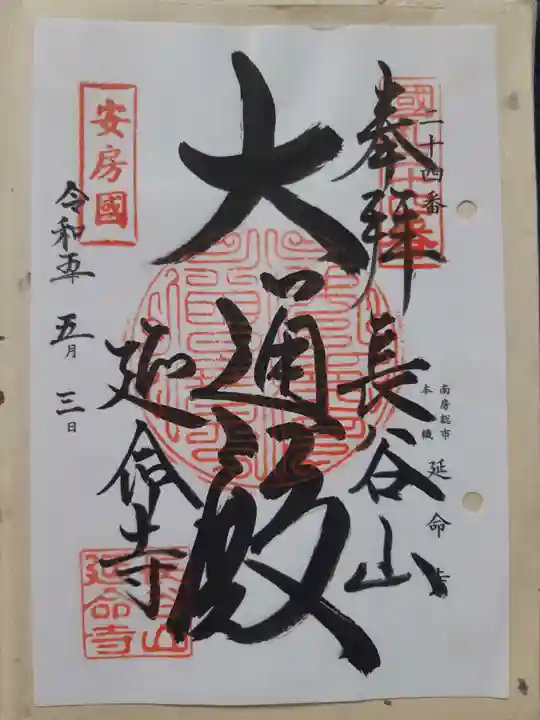 二十四番
奉拝
長谷山
南房総市
本織
延命寺
大通殿
延命寺
安房國
令和五年
五月
三日
長谷山
延命寺